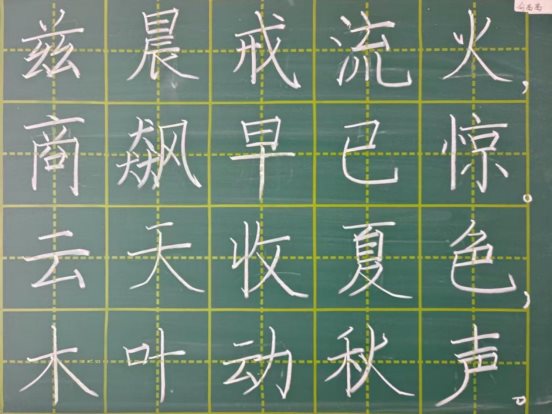 兹晨戒流火,
商飙早已惊。
云天收夏色,
木叶动秋声。